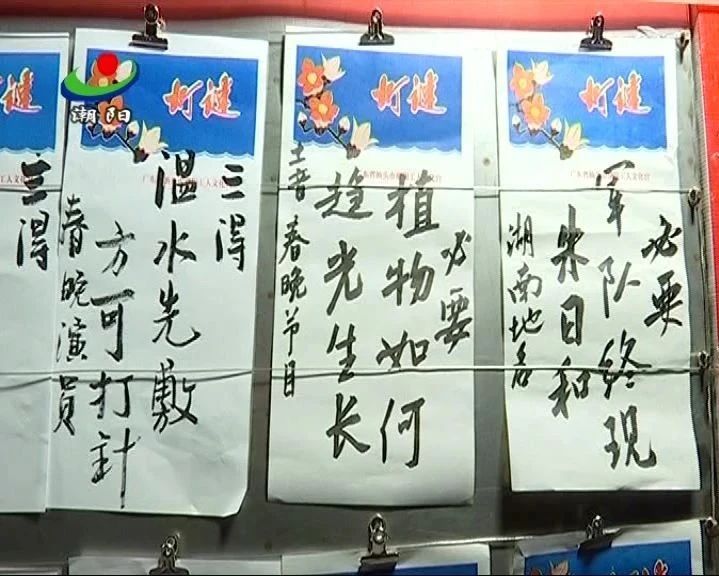 潮阳
三得
灯谜
三得
温水先敷
方可打針
春晚演員
灯谜
必要
植物如何
趋光生长
土音 春晚节目
灯谜
必
军队终现
朱日和
湖南地名